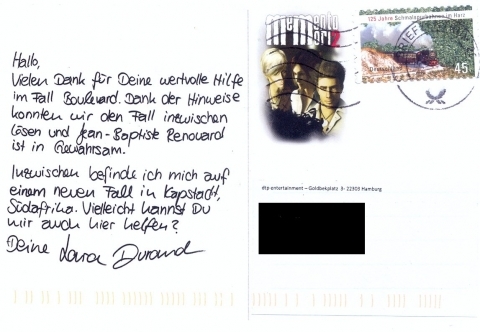 Hallo,
Vielen Dank für Deine wertvolle Hilfe
im Fall Boulevard. Dank der Hinweise
konnten wir den Fall inzwischen
lösen und Jean-Baptiste Renouard
ist in Gewahrsam.
Inzwischen befinde ich mich auf
einem neuen Fall in Kapstadt,
Südafrika. Vielleicht kannst Du
mir auch hier helfen?
Deine Laura Durand
memento
mori
125 Jahre Schmalspurbahnen im Harz
Deutschland
45
BRIEF
dtp entertainment – Goldbekplatz 3 - 22303 Hamburg